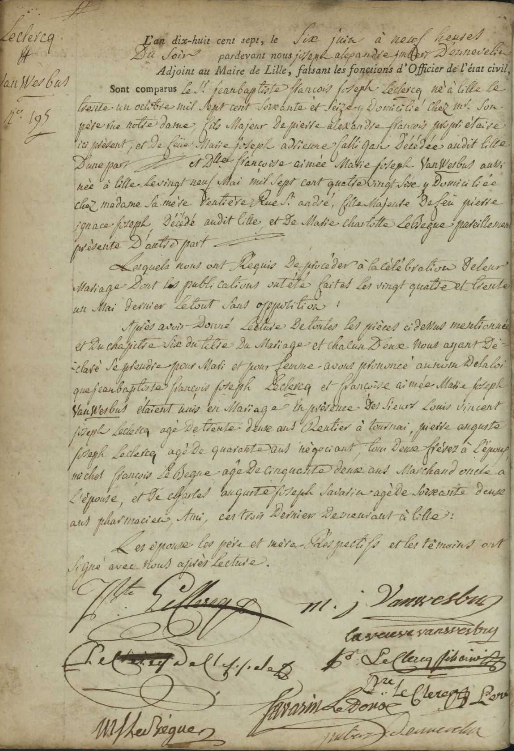 Leclercq
&
Vanwesbus
n.° 195
L'an dix-huit cent sept, le Six juin à neuf heures
Du Soir pardevant nous joseph alexandre
Adjoint au Maire de Lille, faisant les fonctions d'Officier de l'état civil,
Sont comparus le S.r jeanbaptiste françois joseph Leclercq né à lille le
trente un octobre mil Sept cent Soixante et Seize y Domicilié chez m.r Son
père rue notre dame fils Majeur de pierre alexandre françois propriétaire
ici présent, et de feue Marie joseph adrienne Décédée audit lille
D'une part et D.lle françoise aimée Marie joseph Vanwesbus aussi
née à lille le vingt neuf Mai mil Sept cent quatre vingt Six y Domiciliée
chez madame Sa mère Rentière Rue S.t andré, fille Majeure De feu pierre
ignace joseph Décédé audit lille et De Marie charlotte LeBègue pareillement
présente D'autre part
Lesquels nous ont Requis De procéder à la célébration De leur
Mariage Dont les publications ont été faites les vingt quatre et trente
un Mai dernier le tout Sans opposition :
Après avoir Donné Lecture De toutes les pièces cidessus mentionnées
et Du chapitre Six du titre Du Mariage et chacun D'eux nous ayant Dé-
-claré Se prendre pour Mari et pour femme avons prononcé au nom De la loi
que jeanbaptiste françois joseph Leclercq et françoise aimée Marie joseph
Vanwesbus étaient unis en Mariage En présence Des Sieurs Louis Vincent
joseph Leclercq agé de trente deux ans Rentier à tournai, pierre auguste
joseph Leclercq agé de quarante ans négociant, tous deux frères à l'époux
françois LeBègue agé de cinquante deux ans Marchand oncle a
l'épouse, et De charles auguste joseph Savarin agé de Soixante deux
ans pharmacien, Ami, ces trois Dernier Demeurant à lille :
Les époux les père et mère Respectifs et les témoins ont
Signé avec Nous après Lecture.
J Bte Leclercq
m. j Vanwesbus
la veuve vanwesbus
Leclercq
Le Clercq
Savarin
LeBègue